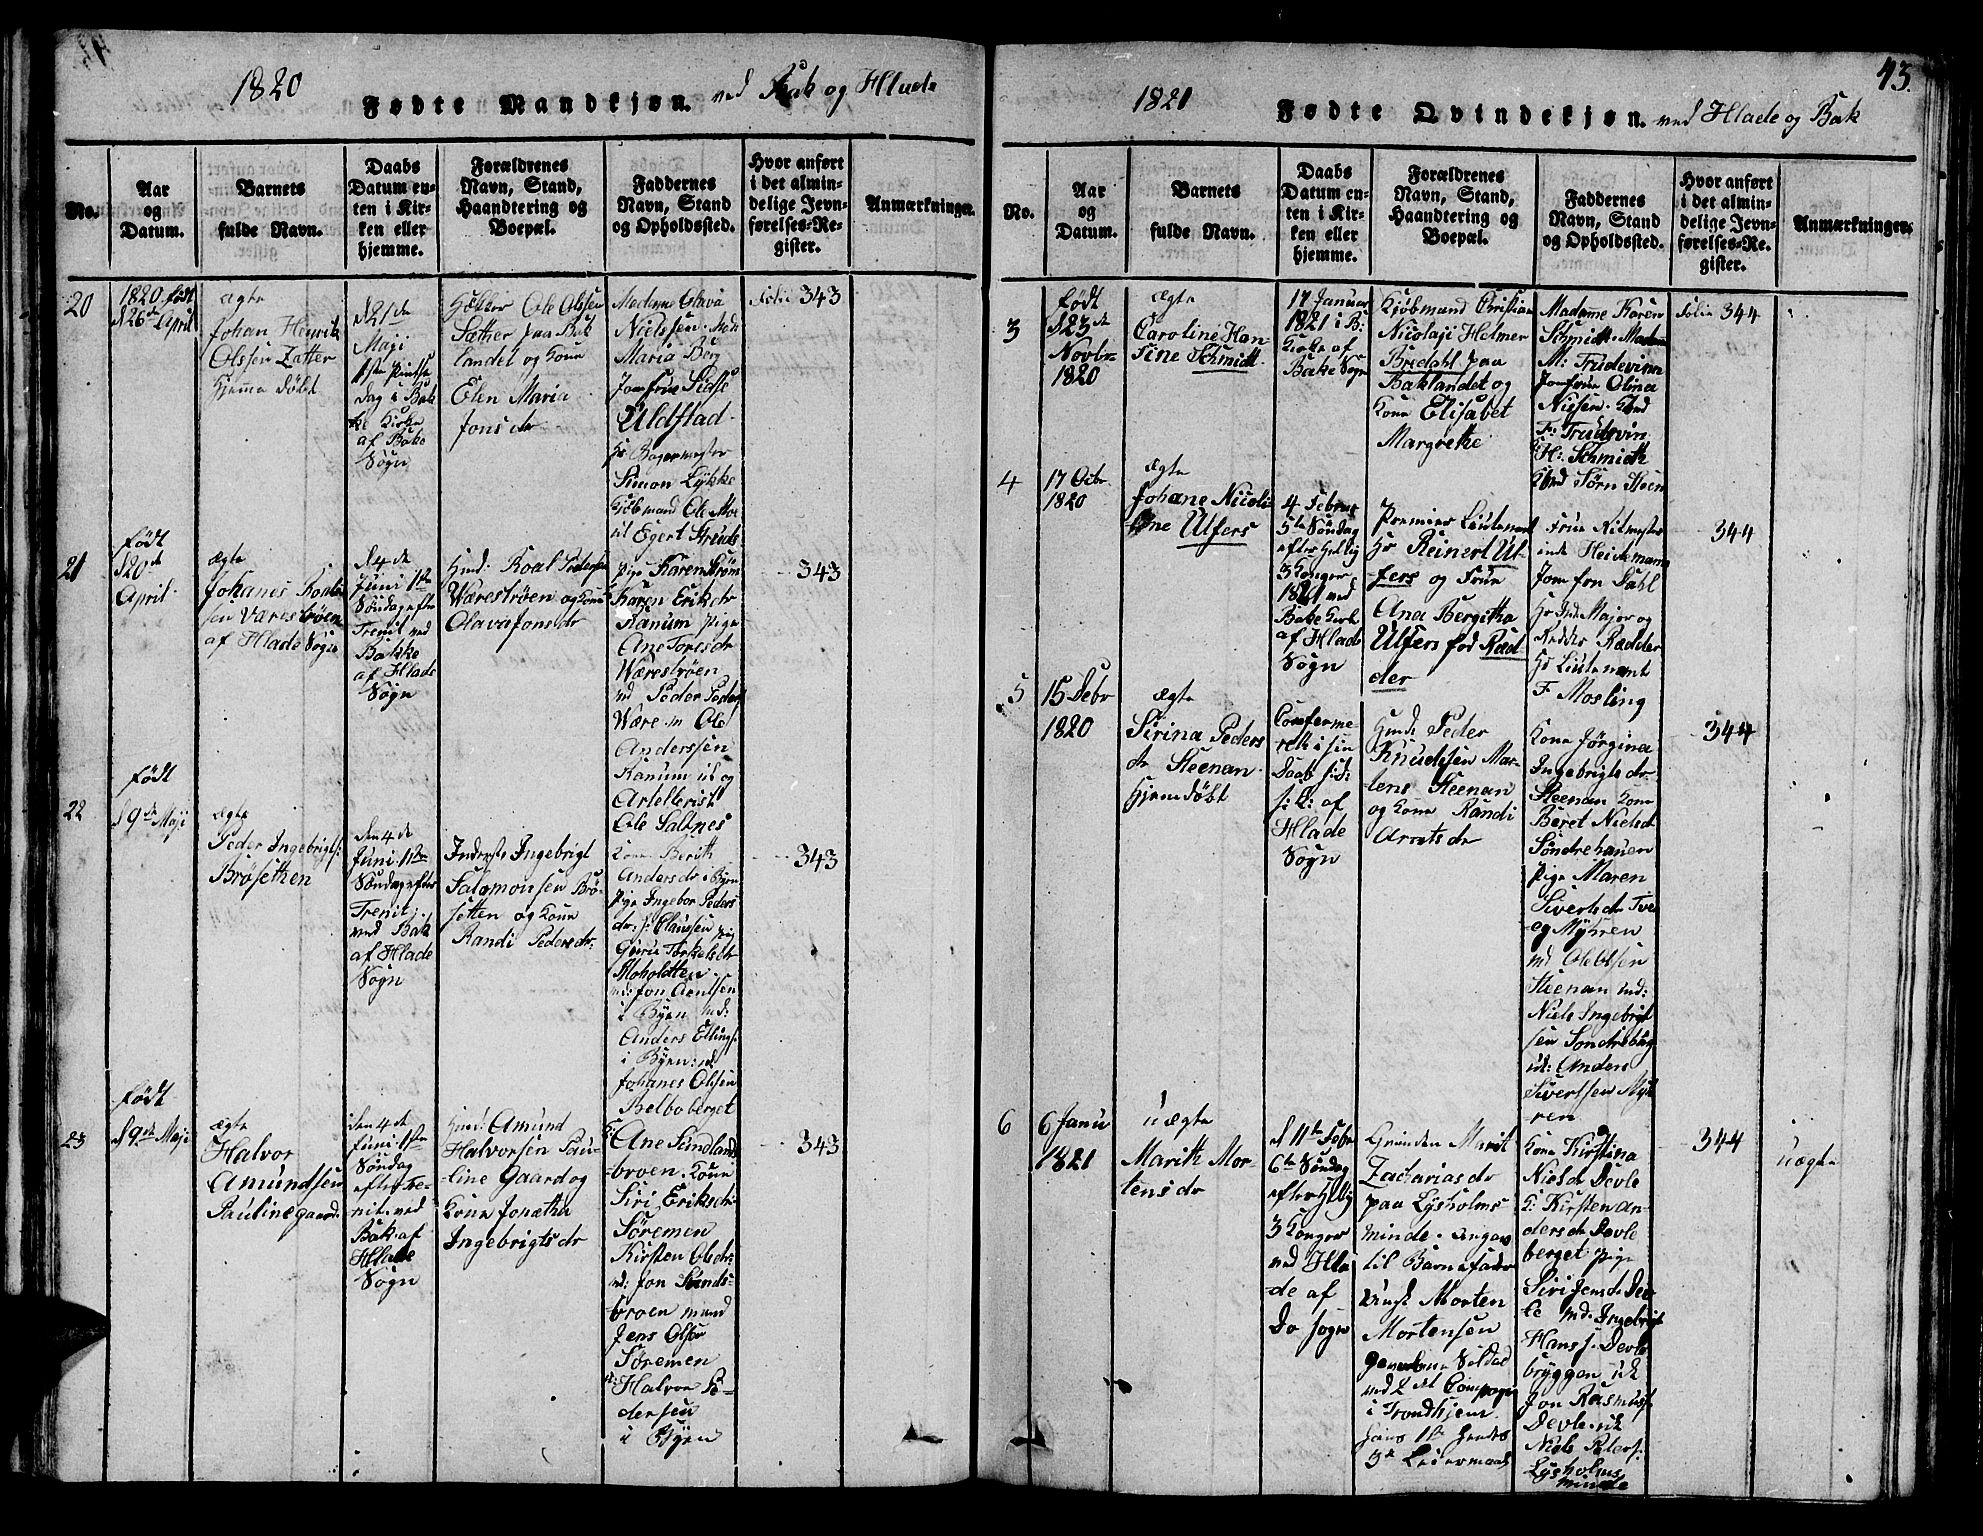 1820
Fødte Mandkjøn. ved Bak og Hlade
No.
Aar
og
Datum.
Barnets
fulde Navn.
Daabs
Datum en-
ten i Kir-
ken eller
hjemme.
Forældrenes
Navn, Stand,
Haandtering og
Boepæl.
Faddernes
Navn, Stand
og Opholdssted.
Hvor anført
i det almin-
delige Jevn-
førelses-Re-
gister.
Anmærkninger.
20
1820 født
d 26de April
ægte
Johan Henrik
Olssen Zætter
hjemme døbt
d 21de
Maji
1ste Pintse
dag i Bak
ke Kirke
af Bake
Sogn
Ole Olssen
Sæther paa Bak
landet og Kone
Elen Maria
Jonsdr
Madame Olava
Nielssen. Mdm
Maria Berg
Jomfrue Sidse
Uldstad
Hr Bagermester
Simon Lykke
Kjøbmand Ole Moe
Egert Strøm
folio 343
21
født
d 20de
April
ægte
Johanes Roal-
sen Værestrøen
af Hlade Sogn
d 4de
Juni 1ste
Søndag efter
Trenit ved
Bakke
af Hlade
Sogn
Huusmd. Roal Pedersen
Wærestrøen og Kone
Olava Jonsdr
pige Karen Strøm
Karen Eriksdr
Ranum pige
Ane Toresdr
Wærestrøen
Peder Peders
Være m Ole
Anderssen
Ranum uk og
Artellerist
Ole Saltnes
343
22
født
d 9de Maji
ægte
Peder Ingebrigts:
Brøsethen
den 4de
Juni 1ste
Søndag efter
Trenit:
ved Bak
af Hlade
Sogn
Inderste Ingebrigt
Salomonsen Brø-
setten og Kone
Randi Pedersdr:
Kone Berith
Andersdr i Byen
pige Ingebor Peders
dr: Claussen pig
Guru Torkelsdr
Moholdten
md: Jon Arntsen
i Byen md:
Anders Ellings:
i Byen: uk
Johanes Olssen
Belboberget
343
23
født
d 9de Maji
ægte
Halvor
Amundsen
Paulinegaard
den 4de
Juni 1ste
Søndag
efter Tre-
nit. ved
Bak af
Hlade
Sogn
Amund
Halvorsen Pau-
line Gaard og
Kone Jonetha
Ingebrigtsdr
Ane Sundland
broen. Kone
Siri Eriksdr
Søremen
Kirsten Olsdr:
md: Jon Sunds-
broen mand
Jens Olsen
Søremen
Halvor Pe-
dersen
i Byen
343
43.
1821
Fødte Qvindekjøn. ved Hlade og Bak
No.
Aar
og
Datum.
Barnets
fulde Navn.
Daabs
Datum en-
ten i Kir-
ken eller
hjemme.
Forældrenes
Navn, Stand,
Haandtering og
Boepæl.
Faddernes
Navn, Stand
og Opholdssted.
Hvor anført
i det almin-
delige Jevn-
førelses-Re-
gister.
Anmærkninger.
3
født
d 23de
Novbr
1820
ægte
Caroline Han-
sine Schmidt
17 Januar
1821 i B:
Kirke af
Bake Sogn
Kjøbmand Christian
Nicolaji Helmer
Bredahl paa
Baklandet og
Kone Elisabet
Margrethe
Madame Karen
Schmidt. Madam
M: Trudevinn
Jomfrue Olina
Nissen. Kbmd
F: Trudevin
H: Schmidt
Kbmd Jørn Steen
folio 344
4
17 Octbr
1820
ægte
Johane Nicoli-
ne Ulfers
4 Februar
5te Søndag
efter Hellig
3 Konger
1821 ved
Bake Kirke
af Hlade
Sogn
Premier Lieutenant
Hr Reinert Ul-
fers og Frue
Ana Bergitha
Ulfers fød Ræd-
der
Frue Ritmester
inde Heidemann
Jomfru Dahl
Hr Major og
Ridder Rædder
Hr Lieutenant
F. Mosling
344
5
15 Debr
1820
ægte
Sirina Peders
dr Steenan
hjemdøbt
Comferme-
rett i sin
Daab
af
Hlade
Sogn
Huusmd: Peder
Knudssen Mar-
tens Steenan
og Kone Randi
Arntsdr
Kone Jørgina
Ingebrigtsdr
Steenan Kone
Beret Nielsdr
Søndrehauen
pige Maren
Sivertsdr Tve
eg Myhren
md Ole Olsen
Steenan md:
Niels Ingebrigt
sen Søndrehaug
uk: Anders
Sivertsen Myh
ren
344
6
6 Janu
1821
uægte
Marith Mor-
tensdr
d 11te Febr
6te Søndag
efter Hellig
3 Konger
ved Hla-
de af
Do sogn
Qvinden Marit
Zachariasdr
paa Lysholms
minde. angav
til Barnefader
Morten
Mortensen
Soldat
ved 2det Compagni
i Trondhjem
hans 1ste hendes
3de Leiermaal
Kone Kirstina
Nielsdr Devle
K: Kirsten An-
dersdr Devle
berget pige
Siri Jensdr Dev
le md. Ingebrigt
Hanss: Devle
bryggen uk
Jon Rasmuss:
Devle. uk
Niels Peters:
Lysholms
minde
344
uægte